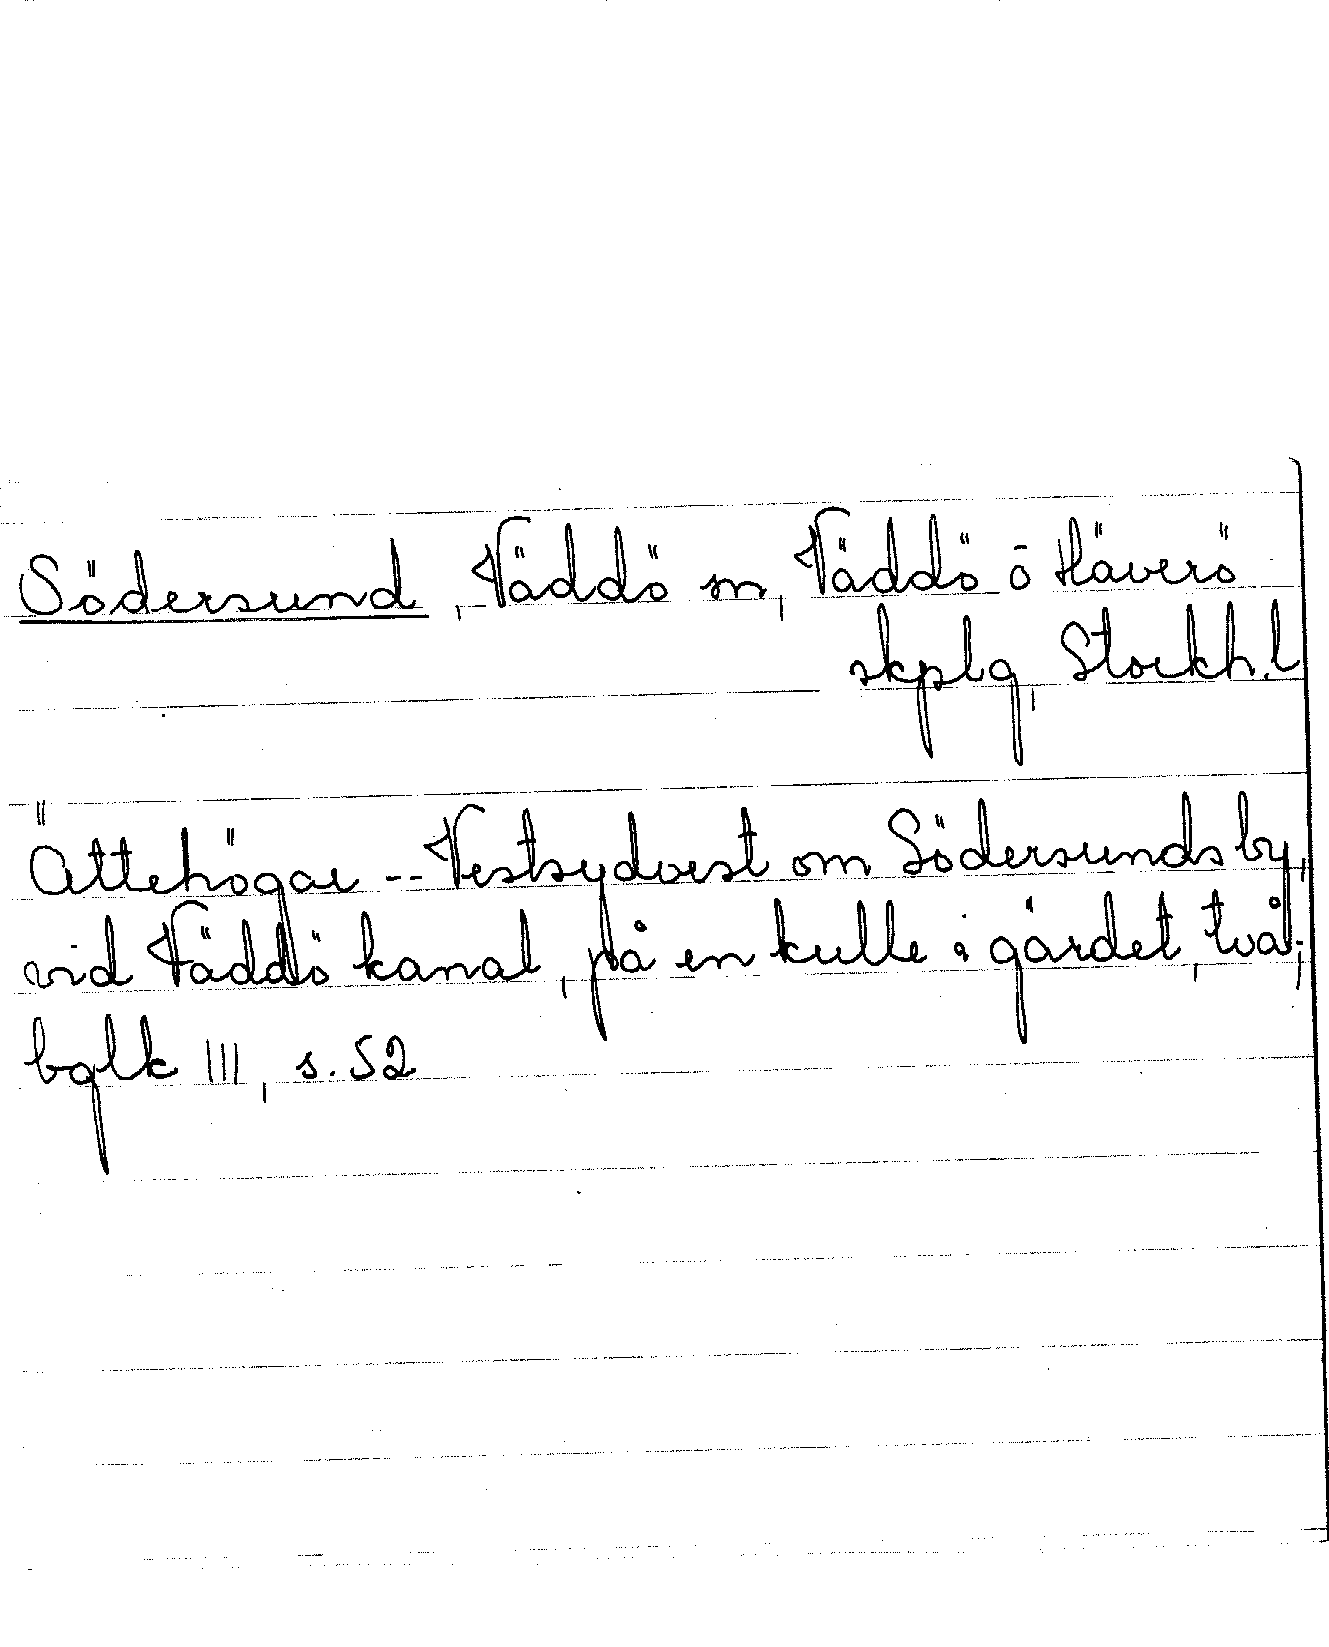 Södersund, Väddö sn, Väddö ō Häverö
skplg, Stockh.l
Ättehögar -- Vestsydvest om Södersunds by,
vid Väddö kanal, på en kulle i gärdet, två;
bglk III, s. 52